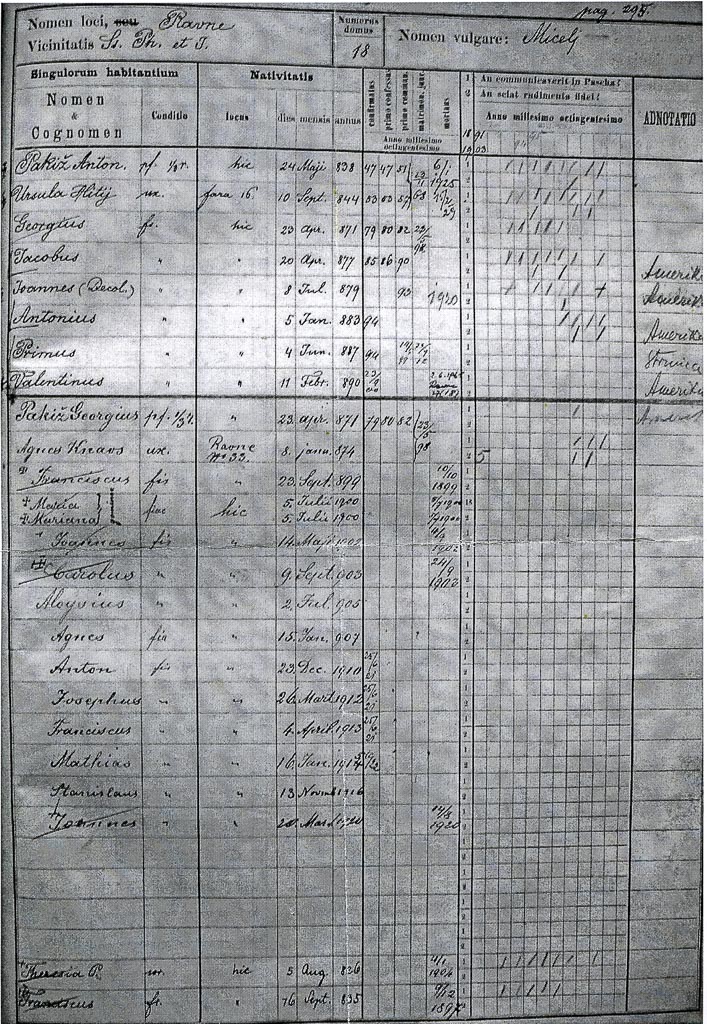 pag. 295.
Nomen loci, seu Ravne
Vicinitatis Ss. Ph. et J.
Numerus domus
18
Nomen vulgare: Micelj
Singulorum habitantium
Nativitatis
confirmatus
primo confessus
primo commun.
matrimon. junc.
mortuus
An communicaverit in Pascha?
An sciat rudimenta fidei?
Nomen & Cognomen
Conditio
locus
dies mensis annus
Anno millesimo octingentesimo
Anno millesimo octingentesimo
ADNOTATIO
Pakiž Anton. pf. 1/3 r. hic 24 Maji 838 47 47 51 6/1 1925
Ursula Hitij ux. fara 16. 10 Sept. 844 53 53 57 68
Georgius fs. hic 23 apr. 871 79 80 82 23/5 98
Jacobus " " 20 Apr. 877 85 86 90 Amerika
Joannes (Decol.) " " 8 Jul. 879 93 1920 Amerika
Antonius " " 5 Jan. 883 94 Amerika
Primus " " 4 Jun. 887 94
Valentinus " " 11 Febr. 890 Amerika
Pakiž Georgius pf. 1/3 r. " 23 apr. 871 79 80 82 23/5 98
Agnes Knavs ux. Ravne No 33. 8. janu. 874
Franciscus fis " 23. Sept. 899 10/10 1899
† Maria fiae hic 5. Julii 1900
† Mariana 5. Julii 1900
Joannes fis " 14. Maji 1902 1902
Carolus " " 9. Sept. 903 24/9 1903
Aloysius " " 2. Jul. 905
Agnes fia " 15. Jan. 907
Anton fis " 23. Dec. 1910 25/6 21
Josephus " " 26. Mart. 1912 25/6 21
Franciscus " " 4. April. 1913 25/6 21
Mathias " " 16. Jan. 1914
Stanislaus " " 13 Novmb 1916
Joannes " " 20. Mart. 1920 14/8 1920
Theresia P. sor. hic 5 Aug. 826 11/1 1904
Franciscus fr. " 16 Sept. 835 9/12 1897